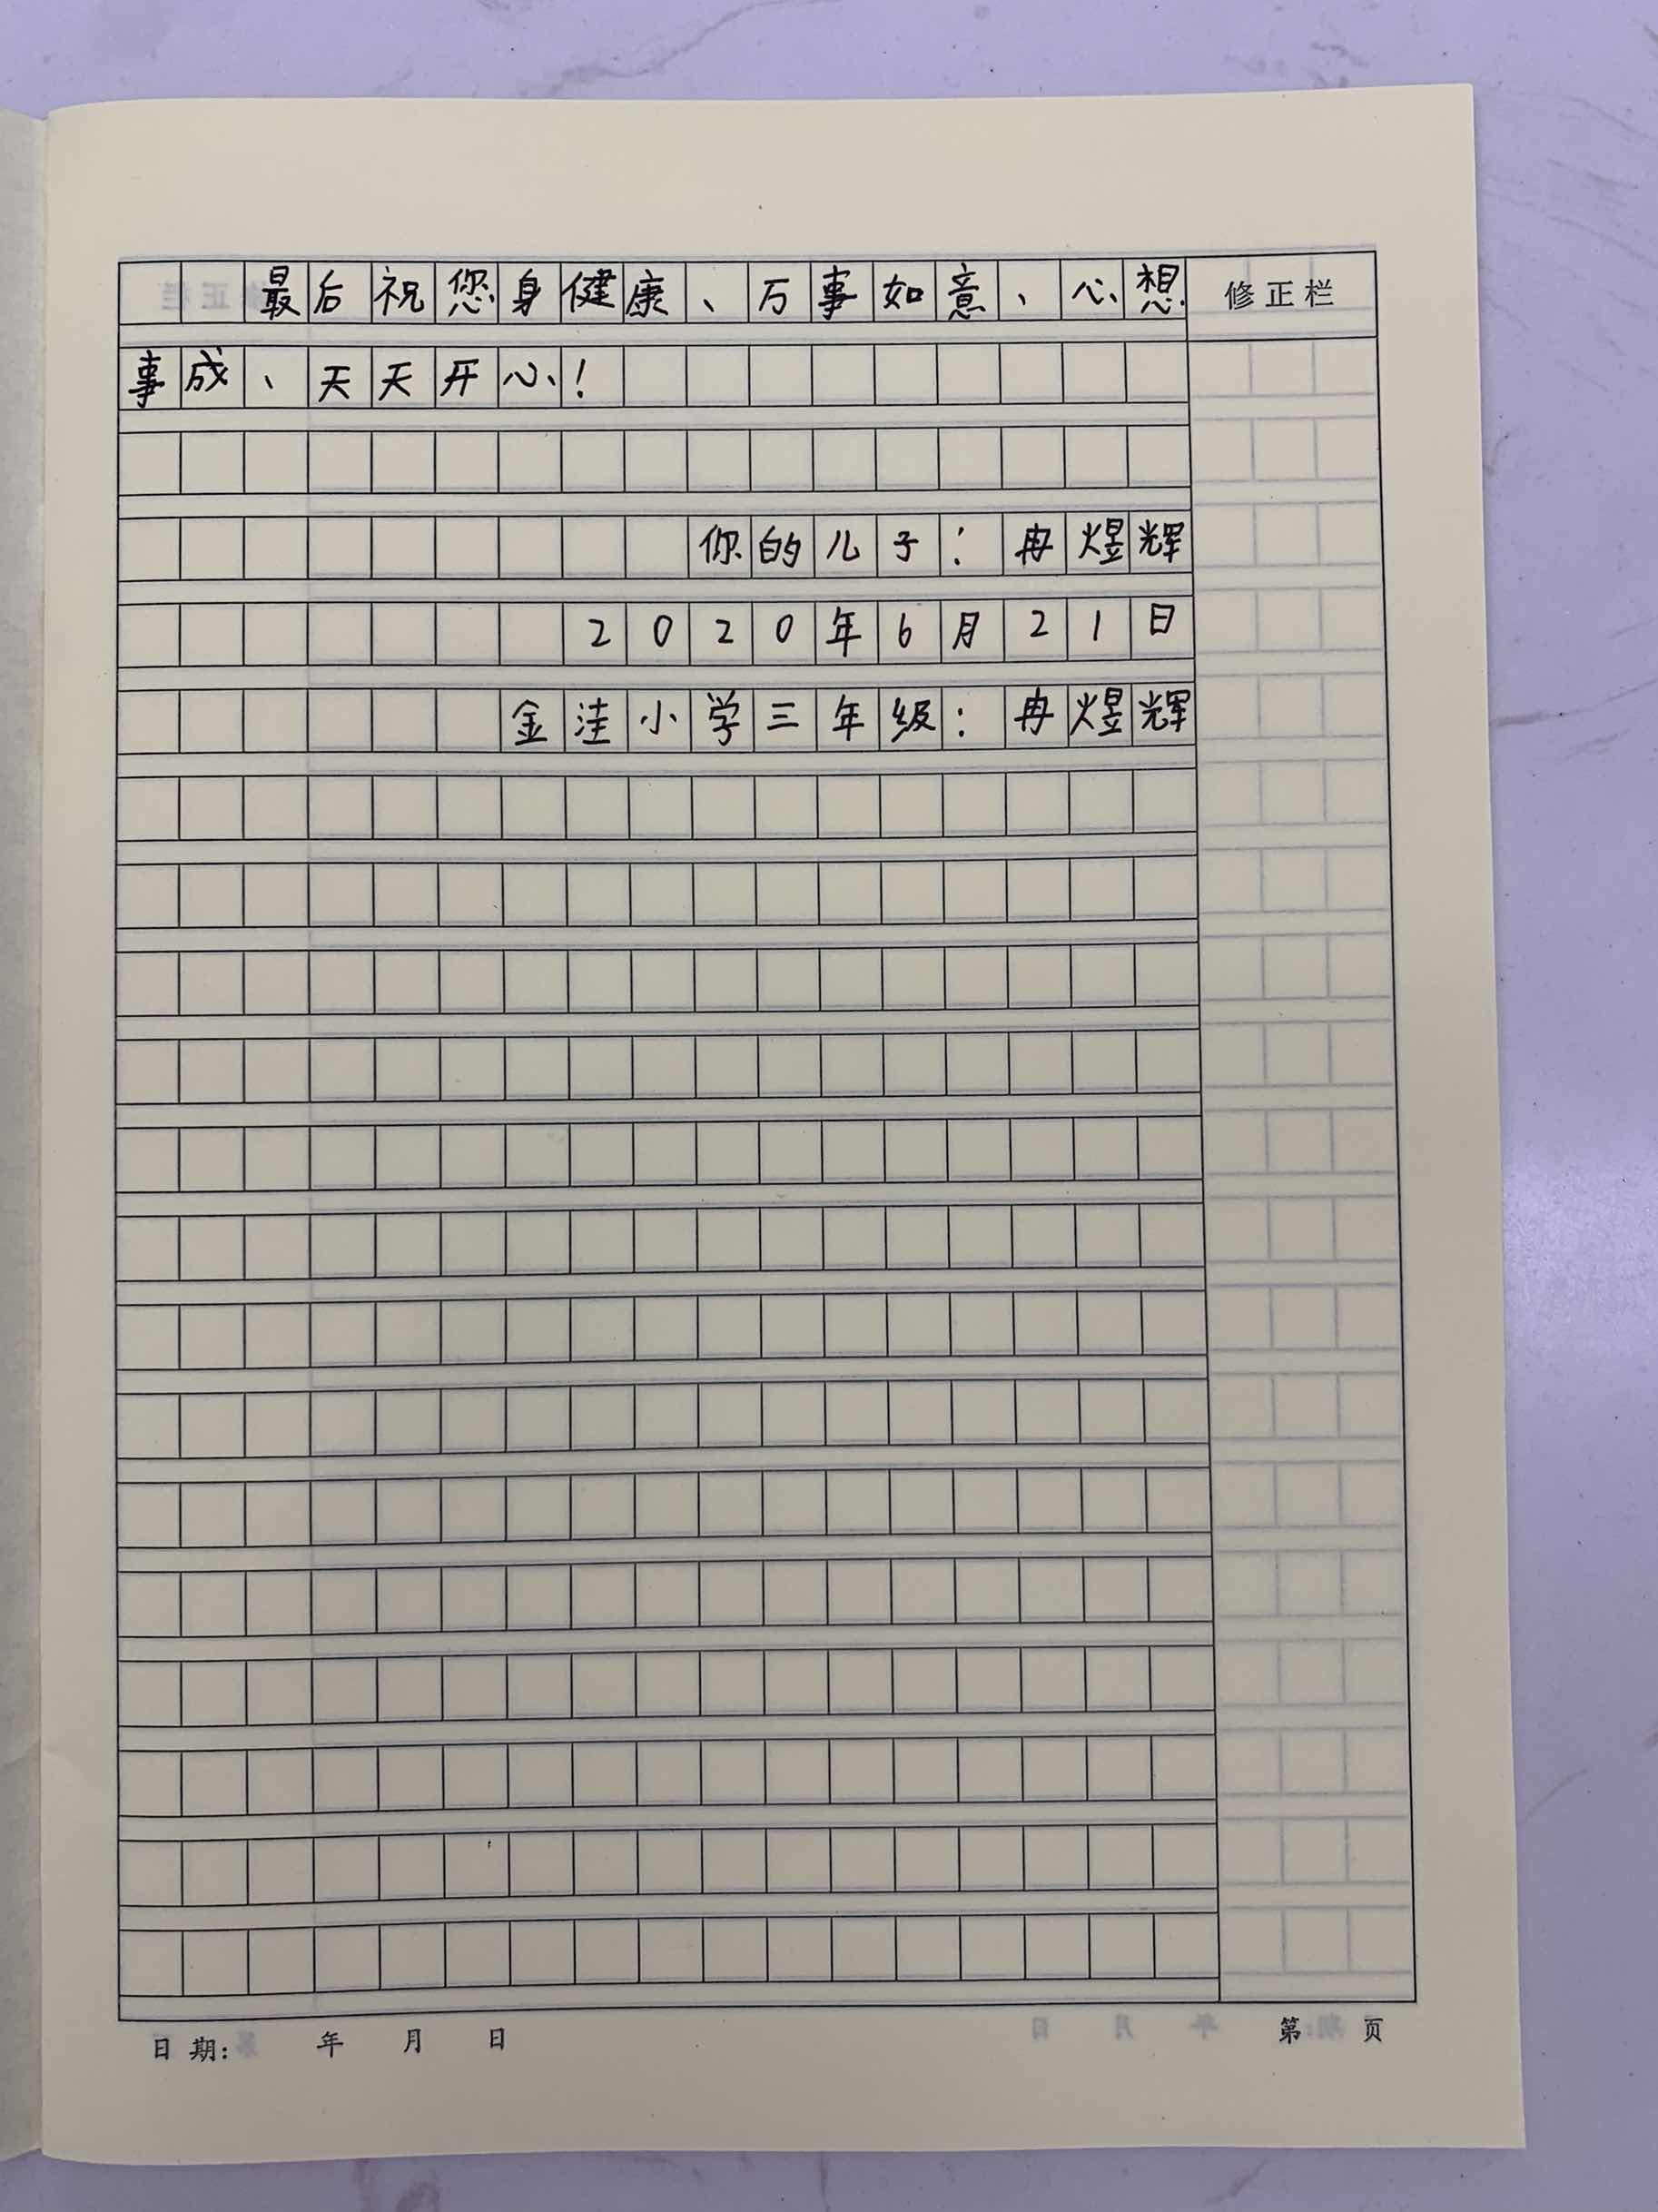 最后祝您身健康、万事如意、心想
修正栏
事成、天天开心!
你的儿子:冉煜辉
2020年6月21日
金洼小学三年级:冉煜辉
日期: 年 月 日
第 页